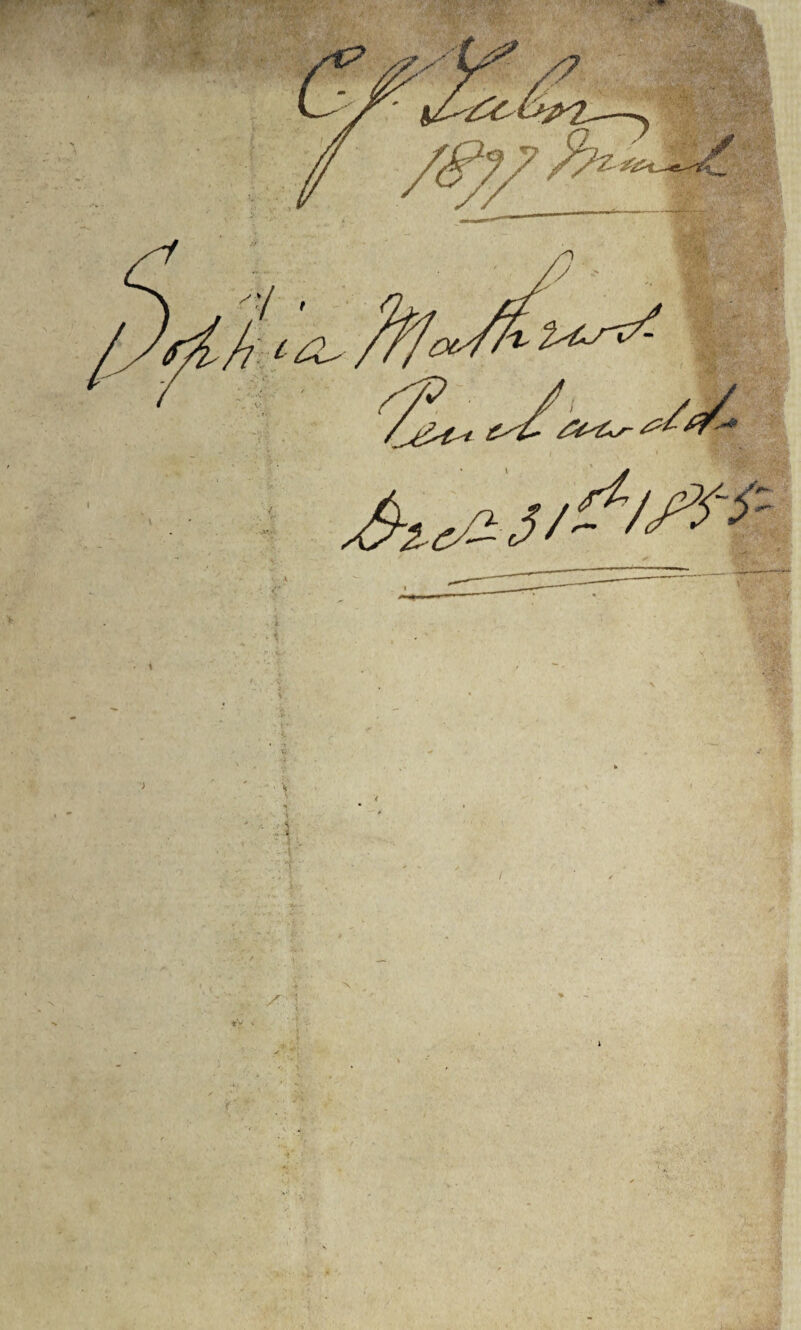 C. J.
1897 March
Sophia Mathews
Penclawdd
Decr 31st 1855